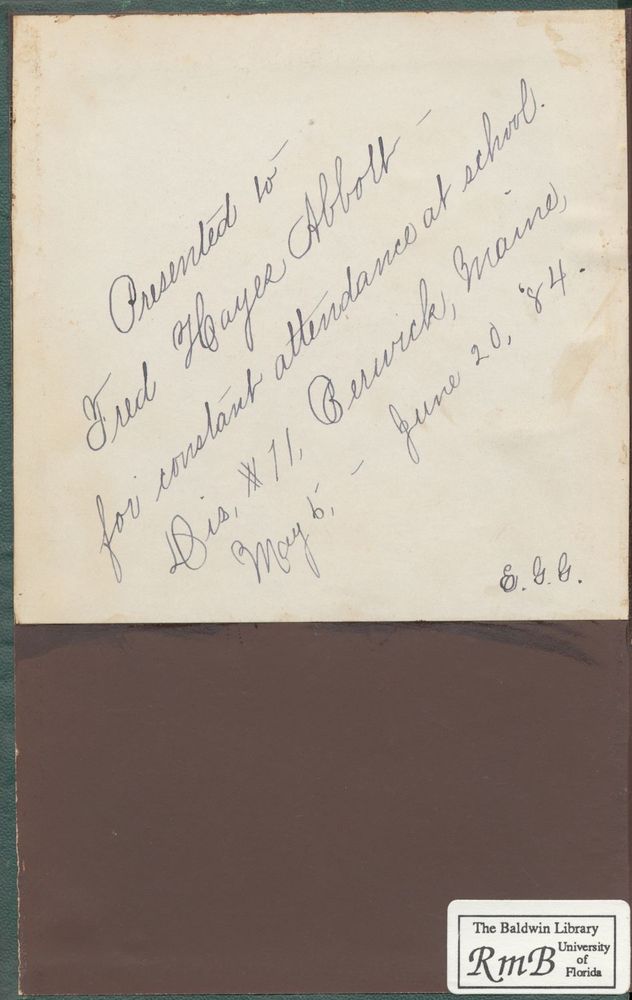 Presented to
Fred Hayes Abbott –
for constant attendance at school.
Dis, #11, Berwick, Maine,
May 5, – June 20, '84.
E. G. G.
The Baldwin Library
RmB University
of
Florida